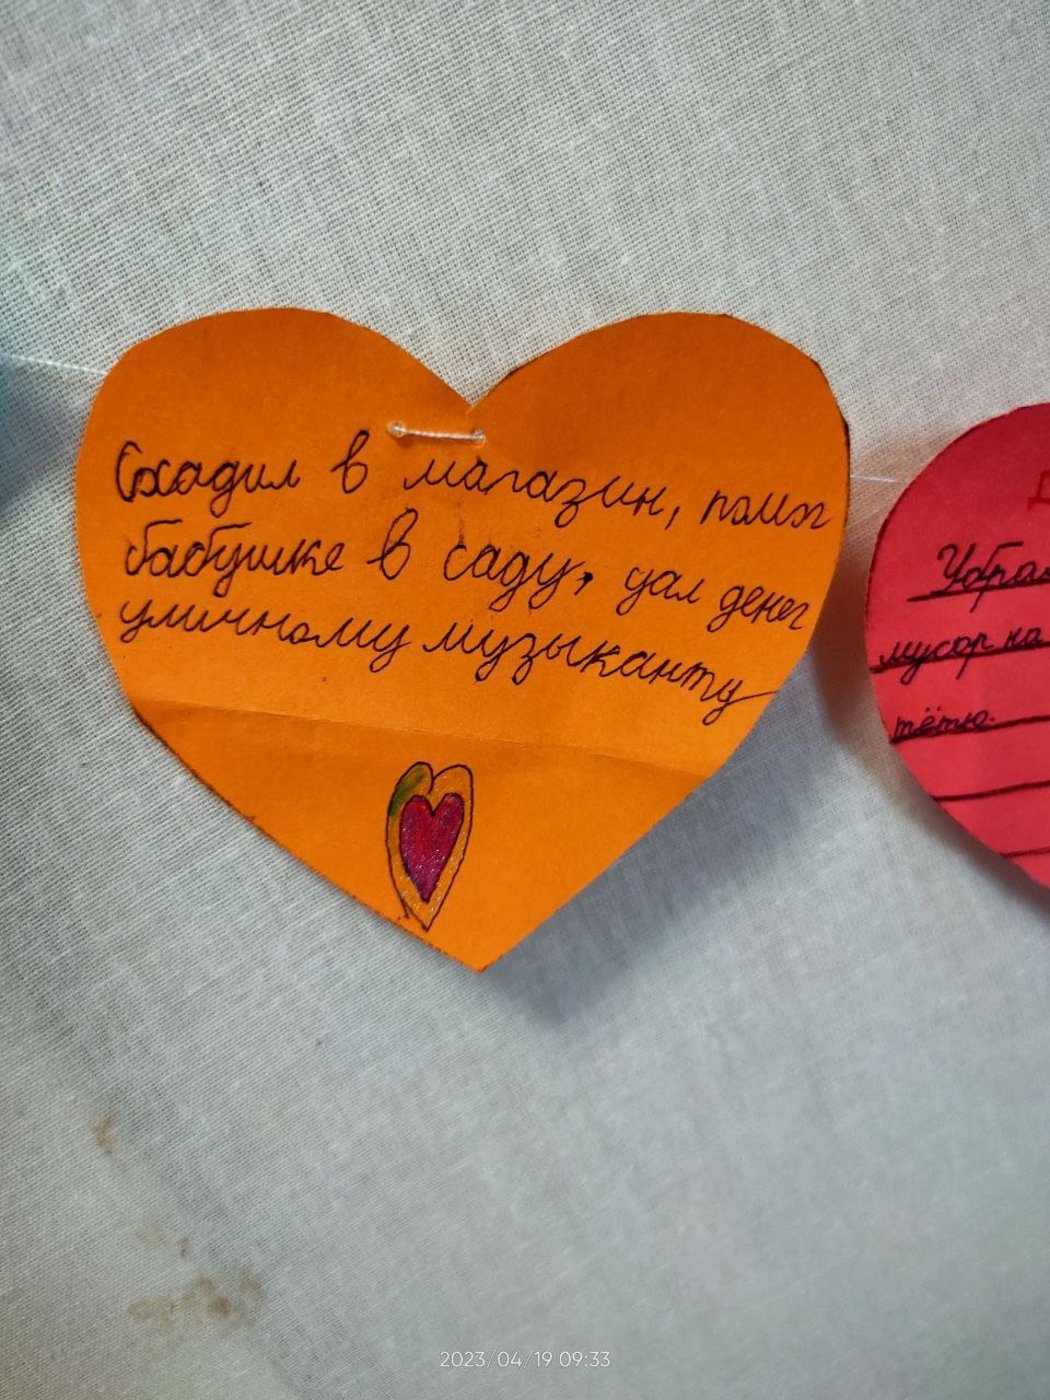 Сходил в магазин, помог
бабушке в саду, дал денег
уличному музыканту
мусор на
тётю.
2023/04/19 09:33